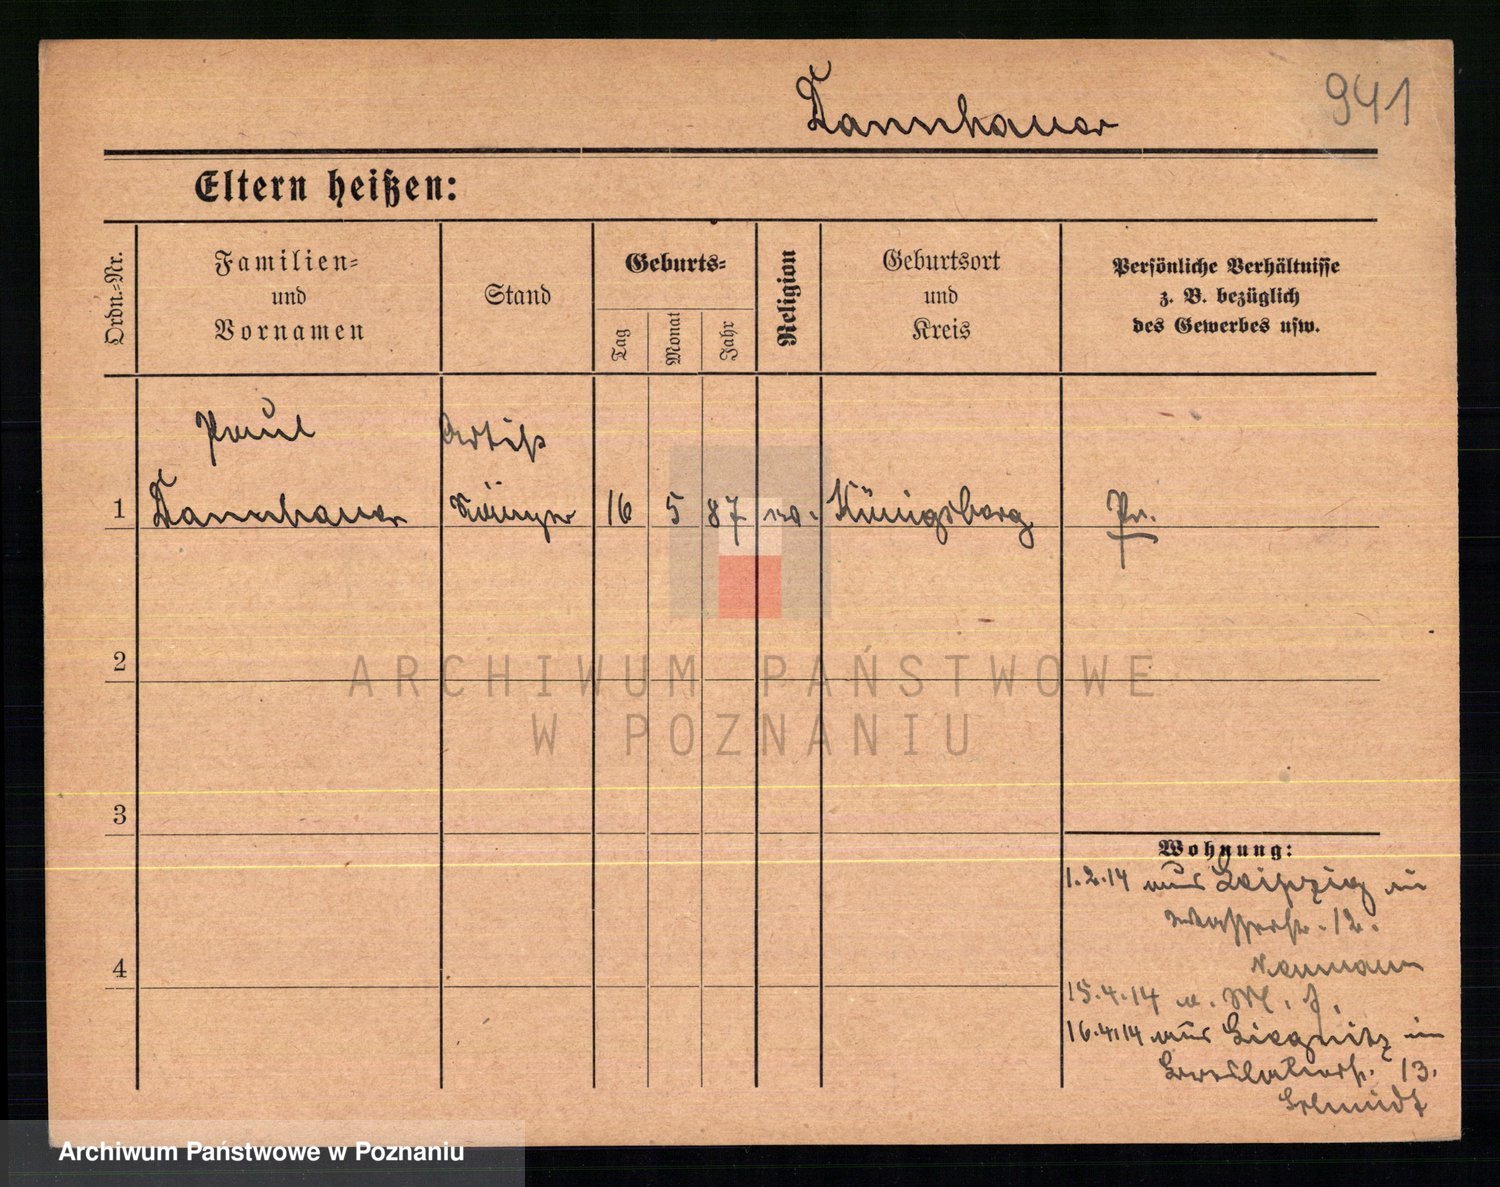 Tannhauer
941
Eltern heißen:
Ordn.-Nr.
Familien-
und
Vornamen
Stand
Geburts-
Tag
Monat
Jahr
Religion
Geburtsort
und
Kreis
Persönliche Verhältnisse
z. B. bezüglich
des Gewerbes usw.
Paul
Artist
1
Tannhauer
16
5
87
ev.
Königsberg
Pr.
2
ARCHIWUM PAŃSTWOWE
W POZNANIU
3
Wohnung:
1.2.14 aus Leipzig in
12.
4
15.4.14
16.4.14 aus Liegnitz in
13.
Schmidt
Archiwum Państwowe w Poznaniu